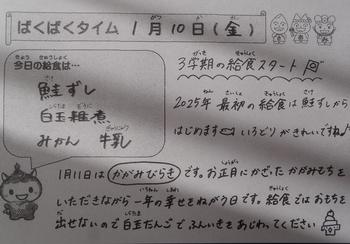 ぱくぱくタイム 1月10日(金)
今日の給食は…
鮭ずし
白玉雑煮
みかん 牛乳
3学期の給食スタート
2025年 最初の給食は 鮭ずしから
はじめます いろどりがきれいですね♪
1月11日は かがみびらき です。お正月にかざった かがみもちを
いただきながら 一年の幸せをねがう日です。給食では おもちを
出せないので 白玉だんごで ふんいきを あじわってください